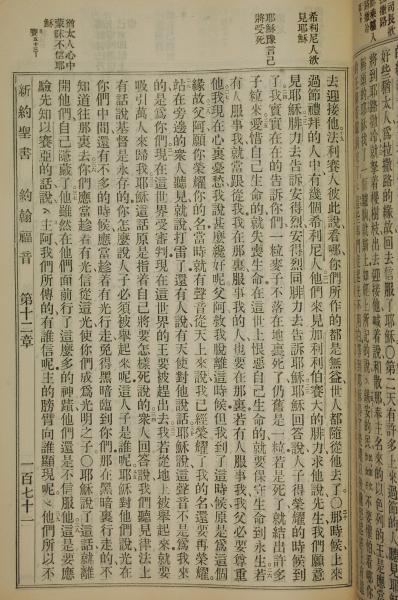 希利尼人欲
見耶穌
耶穌豫言己
將受死
猶太人心中
蒙昧不信耶
穌
去迎接他法利賽人彼此說看哪你們所作的都是無益世人都隨從他去了〇那時候上來
過節禮拜的人中有幾個希利尼人他們來見加利利伯賽大的腓力求他說先生我們願意
見耶穌腓力去告訴安得烈安得烈同腓力去告訴耶穌耶穌回答說人子得榮耀的時候到
了我實實在在的告訴你們一粒麥子不落在地裏死了仍舊是一粒若是死了就結出許多
子粒來愛惜自己生命的就失喪生命在這世上恨惡自己生命的就要保守生命到永生若
有人服事我就當跟從我我在那裏服事我的人也要在那裏若有人服事我我父必要尊重
他我現在心裏憂愁我說甚麼纔好呢父阿救我脫離這時候但我到了這時候原是為這個
緣故父阿願你榮耀你的名當時就有聲音從天上來說我已經榮耀了我的名還要再榮耀
站在旁邊的眾人聽見就說打雷了還有人說有天使對他說話耶穌說這聲音不是為我來
的是為你們現在這世界受審判現在這世界的王要被趕出去我若從地上被舉起來就要
吸引萬人來歸我耶穌這話原是指着自己將要怎樣死說的眾人回答說我們聽見律法上
有話說基督是永存的你怎麼說人子必須被舉起來呢這人子是誰呢耶穌對他們說光在
你們中間還有不多的時候應當趁着有光行走免得黑暗臨到你們那在黑暗裏行走的不
知道往那裏去你們應當趁着有光信從這光使你們成為光明之子〇耶穌說了這話就離
開他們自己隱藏了他雖然在他們面前行了這麼多的神蹟他們還是不信服他這是要應
驗先知以賽亞的話說主阿我們所傳的有誰信呢主的膀臂向誰顯現呢他們所以不
新約聖書　約翰福音　第十二章　一百七十